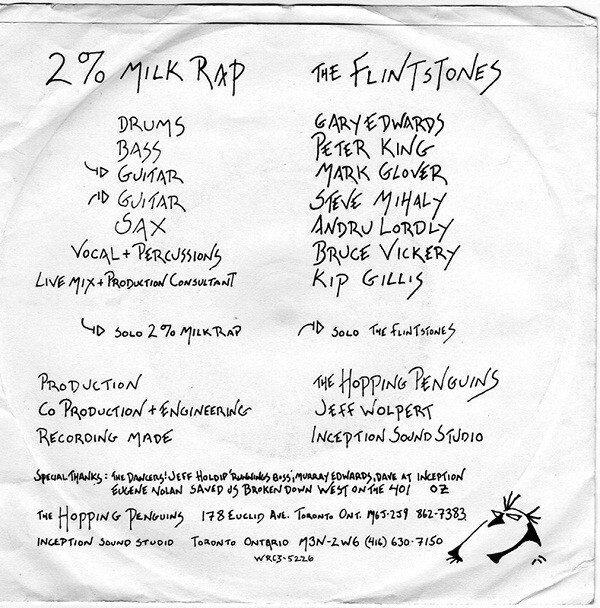 2% MILK RAP THE FLINTSTONES
DRUMS GARY EDWARDS
BASS PETER KING
GUITAR MARK GLOVER
GUITAR STEVE MIHALY
SAX ANDRU LORDLY
VOCAL + PERCUSSIONS BRUCE VICKERY
LIVE MIX + PRODUCTION CONSULTANT KIP GILLIS
SOLO 2% MILK RAP SOLO THE FLINTSTONES
PRODUCTION THE HOPPING PENGUINS
CO PRODUCTION + ENGINEERING JEFF WOLPERT
RECORDING MADE INCEPTION SOUND STUDIO
SPECIAL THANKS: THE DANCERS: JEFF HOLDIP 'RUNNINGS BOSS', MURRAY EDWARDS, DAVE AT INCEPTION
EUGENE NOLAN SAVED US BROKEN DOWN WEST ON THE 401 OZ
THE HOPPING PENGUINS 178 EUCLID AVE. TORONTO ONT. M6J-2J9 862-7383
INCEPTION SOUND STUDIO TORONTO ONTARIO M3N-2W6 (416) 630-7150
WRC3-5226